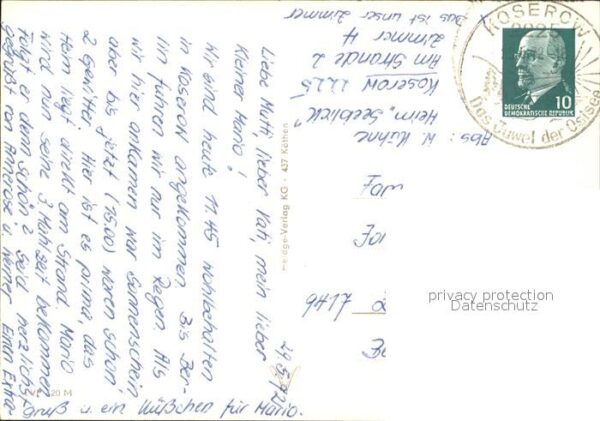 29.5.72
Liebe Mutti, lieber Vati, mein lieber
kleiner Mario!
Wir sind heute 11.45 wohlbehalten
in Koserow angekommen. Bis Ber-
lin fuhren wir nur im Regen. Als
wir hier ankamen war Sonnenschein
aber bis jetzt (15.00) waren schon
2 Gewitter. Hier ist es prima, das
Heim liegt direkt am Strand. Mario
wird nun seine 3. Mahlzeit bekommen
folgt er denn schön? Seid herzlichst
gegrüßt von Annerose u. Werner Einen Extra
gruß u. ein Küßchen für Mario.
Heldge-Verlag KG · 437 Köthen
20 M
Das ist unser Zimmer
Abs: W. Kühne
Heim "Seeblick"
Koserow 2225
Am Strande 2
Zimmer 4
KOSEROW
2225
Das Juwel der Ostsee
DEUTSCHE
DEMOKRATISCHE REPUBLIK
10
Fam
9417
privacy protection
Datenschutz